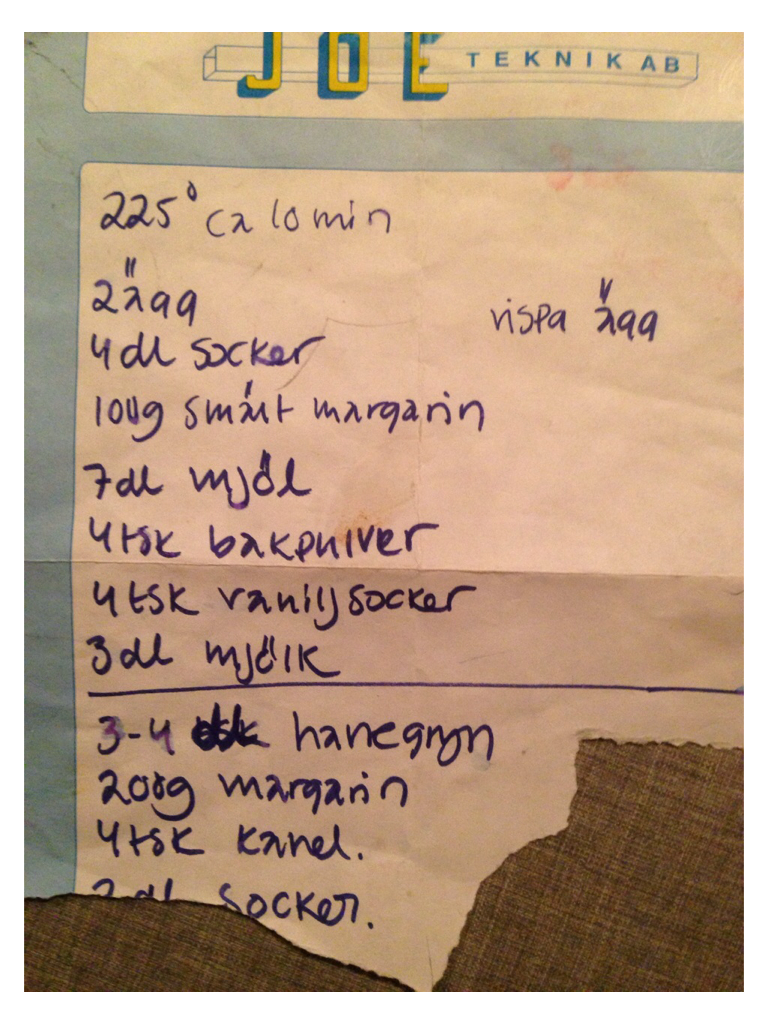 JOE TEKNIK AB
225° ca 10 min
2 ägg
vispa ägg
4 dl socker
100g smält margarin
7 dl mjöl
4 tsk bakpulver
4 tsk vaniljsocker
3 dl mjölk
3-4 havregryn
200g margarin
4 tsk kanel.
dl socker.